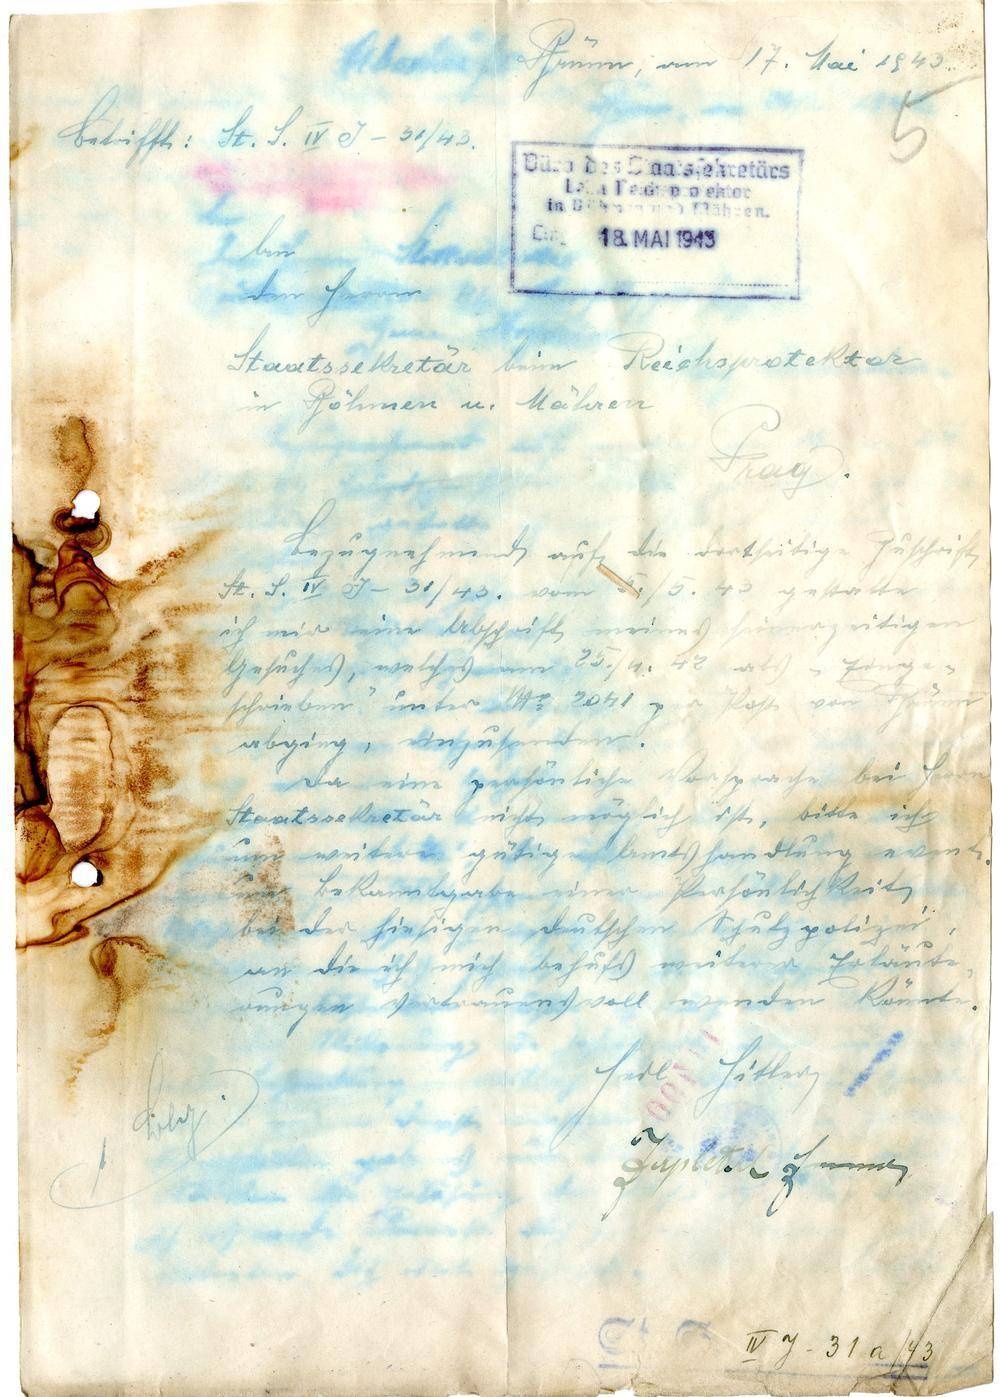 Brünn, am 17. Mai 1943.
5
Betrifft: St. S. IV J - 31/43.
Büro des Staatssekretärs
beim Reichsprotektor
in Böhmen und Mähren.
Eing. 18. MAI 1943
An
den Herrn
Staatssekretär beim Reichsprotektor
in Böhmen u. Mähren
Prag.
Bezugnehmend auf die dortseitige Zuschrift
St. S. IV J - 31/43. vom 5./5. 43 gestatte
ich mir eine Abschrift meines seinerzeitigen
Gesuches, welches am 25./4. 42 als „Einge-
schrieben" unter No 2041 per Post von Brünn
abging, einzusenden.
Da eine persönliche Vorsprache bei Herrn
Staatssekretär nicht möglich ist, bitte ich
um weitere gütige Amtshandlung event.
um Bekanntgabe einer Persönlichkeit
bei der hiesigen deutschen Schutzpolizei,
an die ich mich behufs weiterer Erläute-
rungen vertrauensvoll wenden könnte.
Heil Hitler
IV J - 31 a/43